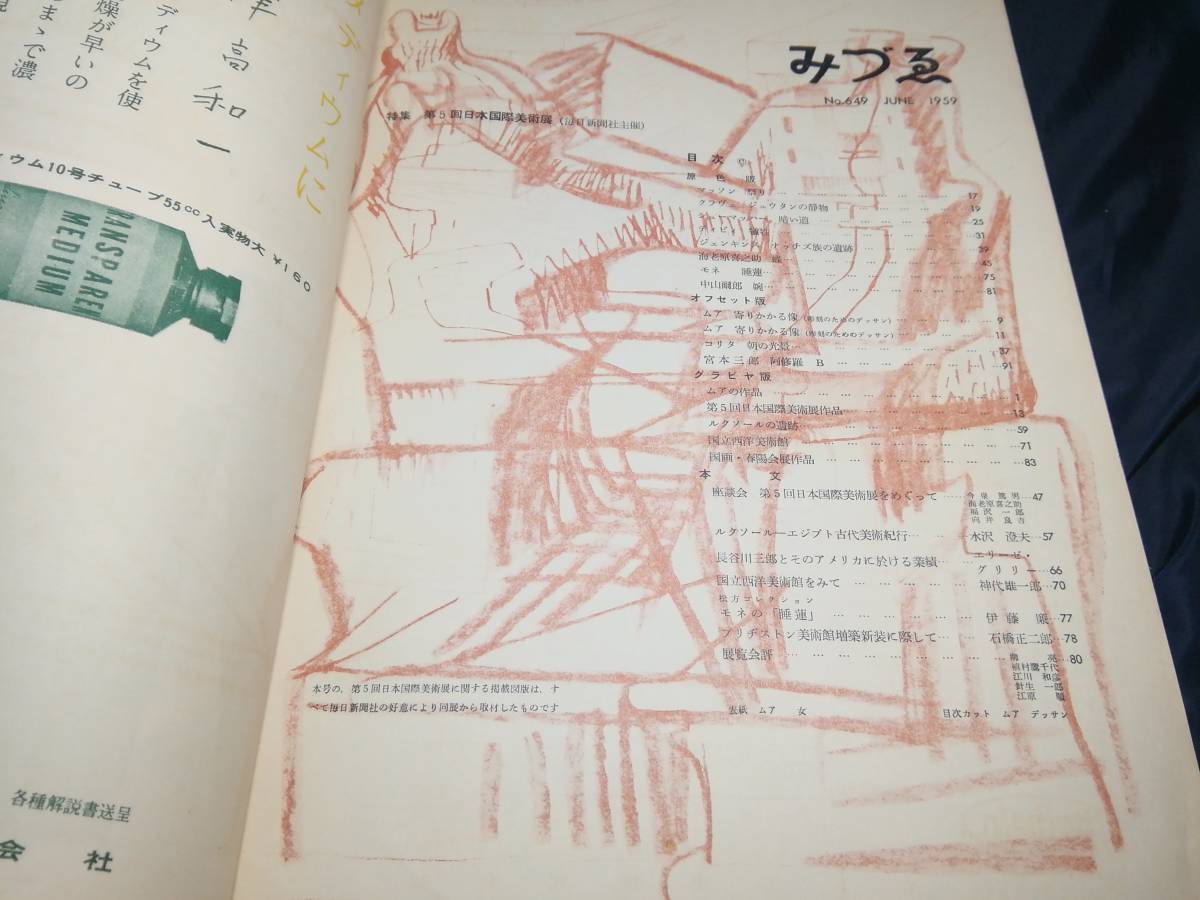 メディウムに
高和一
ディウムを使
燥が早いの
まゝで濃
ウム10号チューブ55cc入実物大 ¥160
TRANSPAREN
MEDIUM
各種解説書送呈
会社
みづゑ
No.649 JUNE 1959
特集 第5回日本国際美術展(毎日新聞社主催)
目次
原色版
祭り 17
クラヴェ ジュウタンの静物 19
暗い道 25
31
ジェンキンス ナッチズ族の遺跡 39
海老原喜之助 45
モネ 睡蓮 75
中山爾郎 婉 81
オフセット版
ムア 寄りかかる像(彫刻のためのデッサン) 9
ムア 寄りかかる像(彫刻のためのデッサン) 11
コリタ 朝の光景 37
宮本三郎 阿修羅 B 91
グラビヤ版
ムアの作品 1
第5回日本国際美術展作品 13
ルクソールの遺跡 59
国立西洋美術館 71
国画・春陽会展作品 83
本文
座談会 第5回日本国際美術展をめぐって 今泉篤男 47
海老原喜之助
福沢一郎
向井良吉
ルクソール―エジプト古代美術紀行 水沢澄夫 57
長谷川三郎とそのアメリカに於ける業績 エリーゼ・
グリリー 66
国立西洋美術館をみて 神代雄一郎 70
松方コレクション
モネの「睡蓮」 伊藤廉 77
ブリヂストン美術館増築新装に際して 石橋正二郎 78
展覧会評 80
植村鷹千代
江川和彦
針生一郎
江原順
本号の、第5回日本国際美術展に関する掲載図版は、す
べて毎日新聞社の好意により同展から取材したものです
表紙 ムア 女
目次カット ムア デッサン